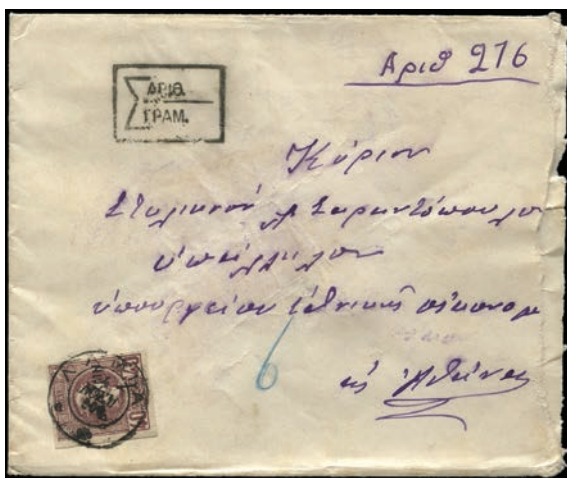 Αριθ 216
Σ ΑΡΙΘ.
ΓΡΑΜ.
Κύριον
Σαραντόπουλον
ὑπάλληλον
ὑπουργείου ἐθνικῆς οἰκονομ
6
εἰς Ἀθήνας